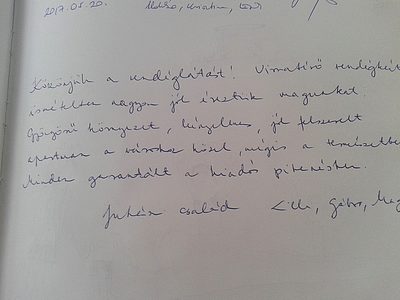 2017.05.20.
Köszönjük a vendéglátást! Visszatérő vendégként
ismételten nagyon jól éreztük magunkat.
Gyönyörű környezet, kényelmes, jól felszerelt
apartman a városhoz közel, mégis a természetben.
Minden garantált a kiadós pihenéshez.
Juhász család